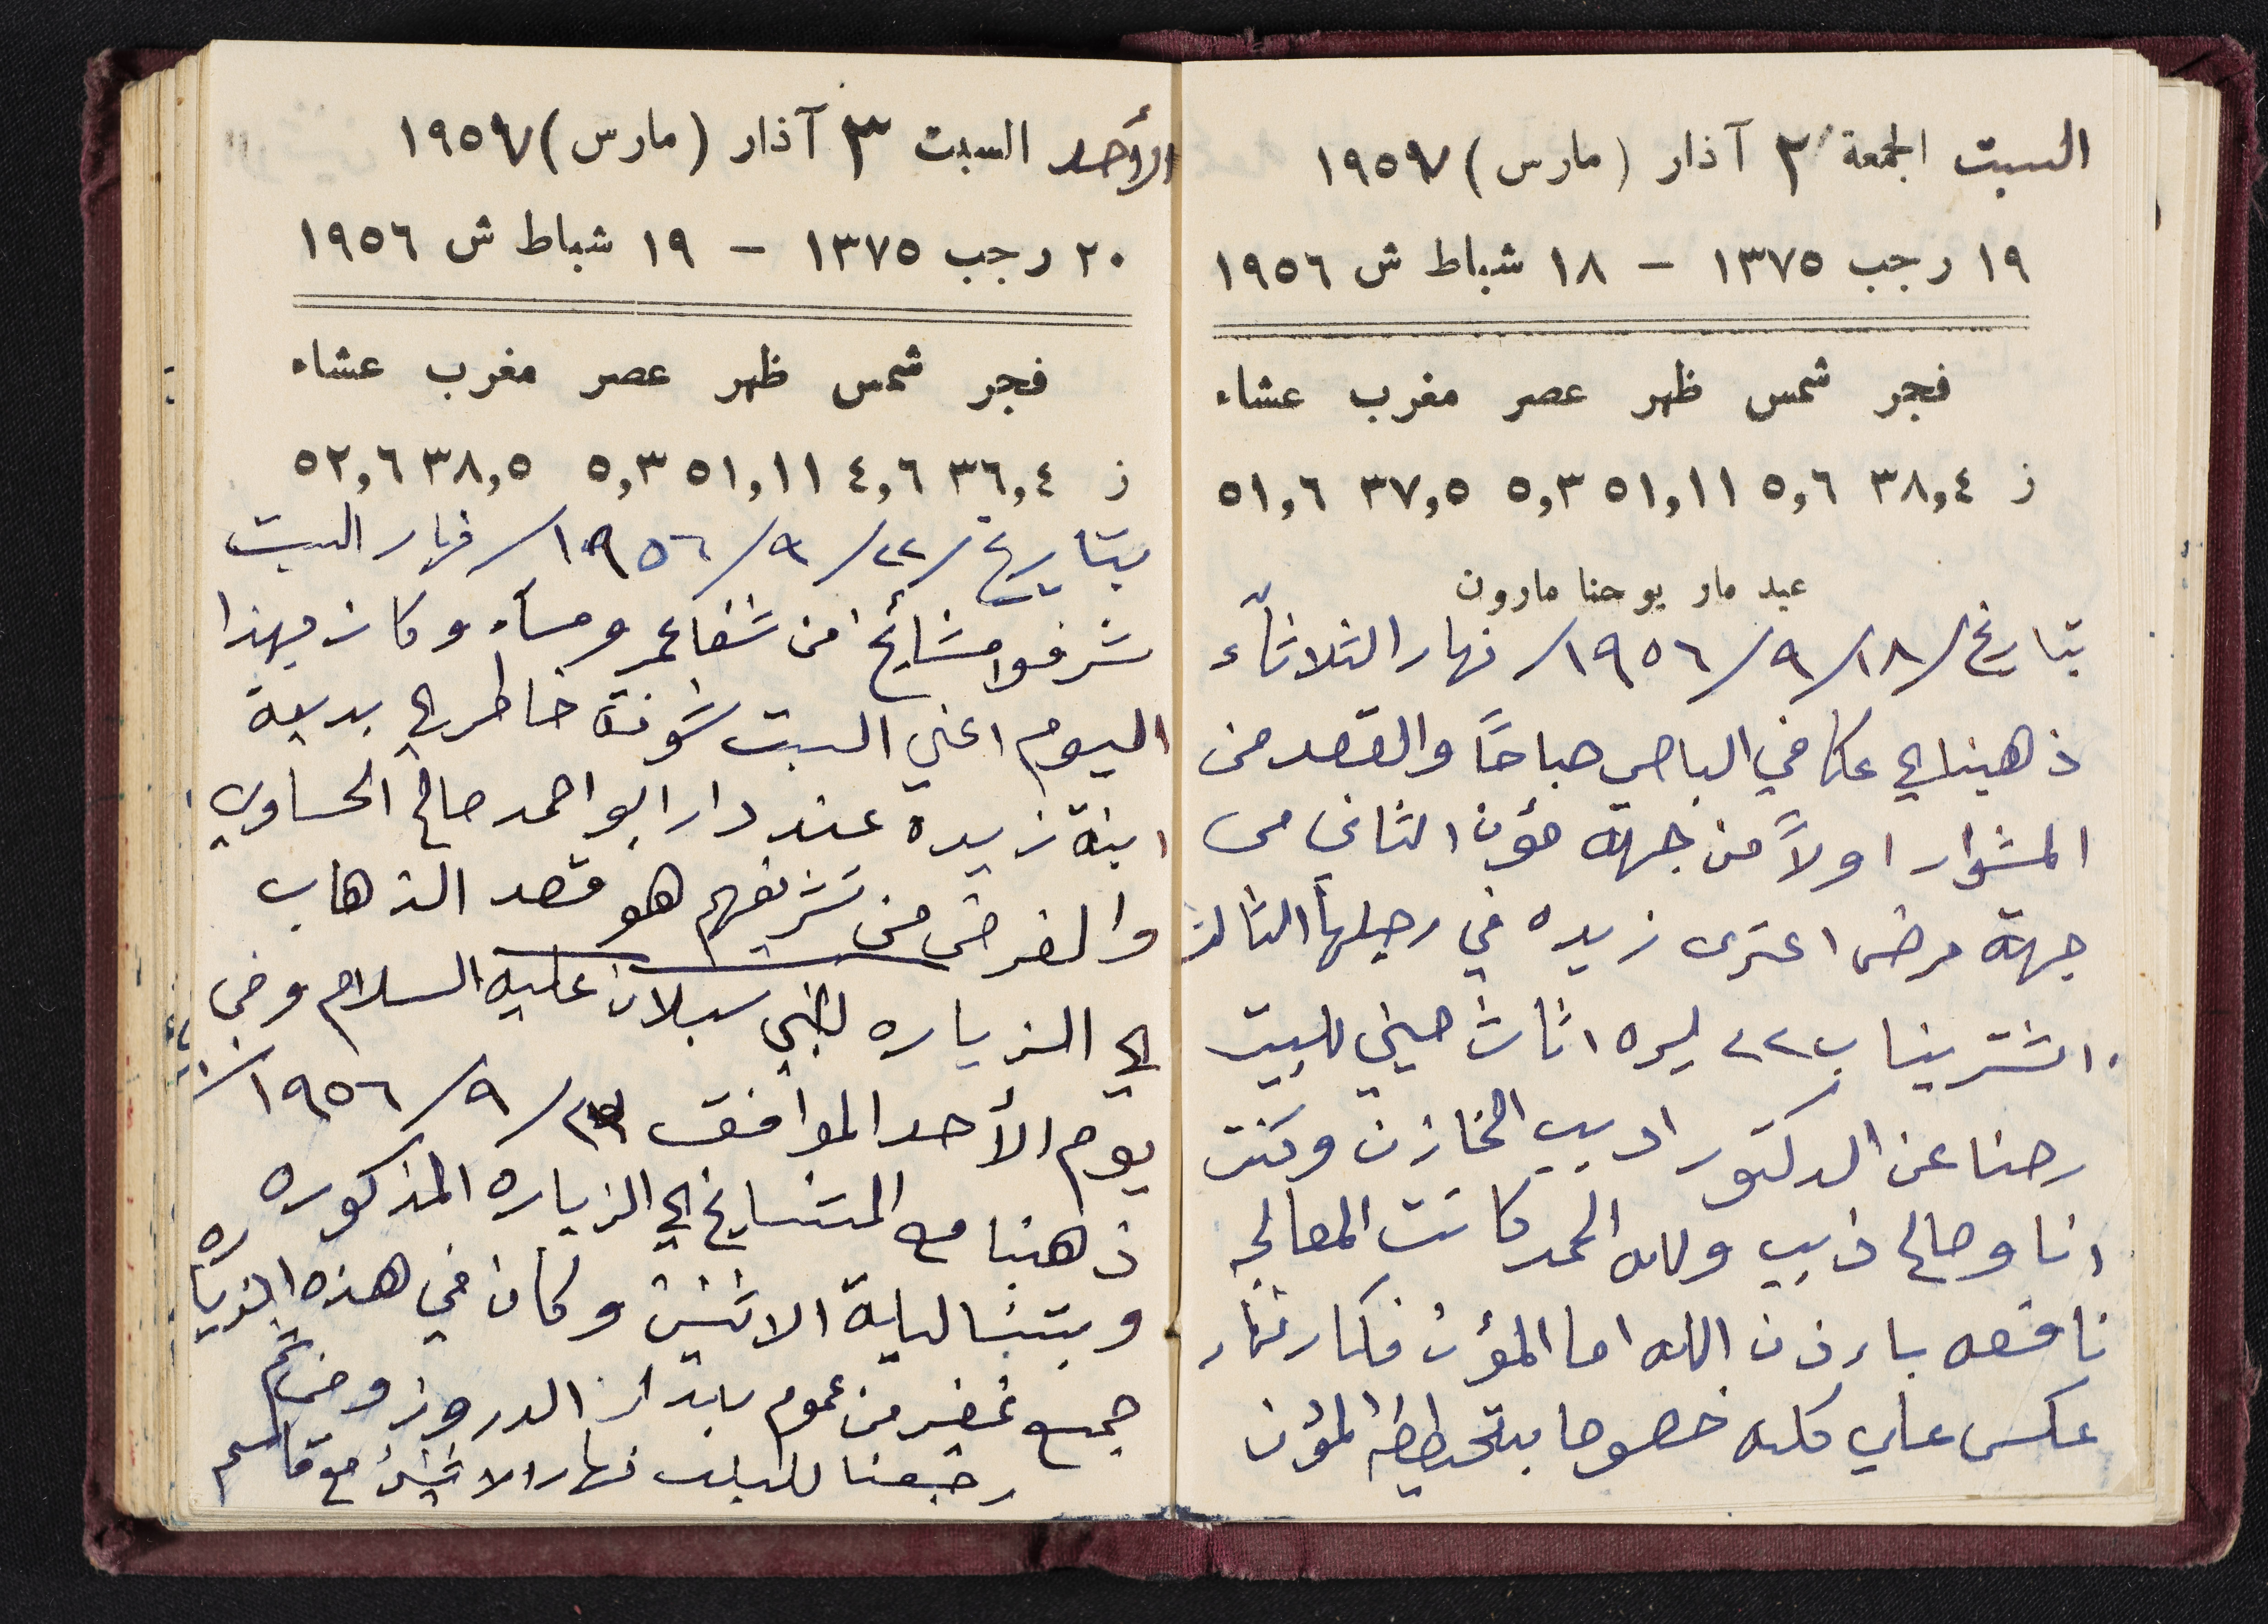 السبت الجمعة ٢ آذار (مارس) ١٩٥٧
١٩ رجب ١٣٧٥ – ١٨ شباط ش ١٩٥٦
فجر شمس ظهر عصر مغرب عشاء
ز ٣٨,٤ ٥,٦ ٥١,١١ ٥,٣ ٣٧,٥ ٥١,٦
عيد مار يوحنا مارون
بتاريخ /١٨/٩/١٩٥٦/ نهار الثلاثاء
ذهبنا الي عكا في الباص صباحًا والقصد من
المشوار اولاً من جهة مؤن الثاني من
جهة مرض اعترى زيده في رجيلها الثالث
اشترينا ب ٢٢ ليره اثاث صيني للبيت
رحنا عن الدكتور اديب الخازن وكنت
انا وصالح ذيب ولله الحمد كانت المعالجه
نافعه باءذن الله اما المؤن فكان
عكس علي كله خصوصا المؤن
الأحد السبت ٣ آذار (مارس) ١٩٥٧
٢٠ رجب ١٣٧٥ – ١٩ شباط ش ١٩٥٦
فجر شمس ظهر عصر مغرب عشاء
ز ٣٦,٤ ٤,٦ ٥١,١١ ٥,٣ ٣٨,٥ ٥٢,٦
بتاريخ /٢٢/٩/١٩٥٦/ نهار السبت
شرفوا مشائخ من شفاعمر ومساء وكان بهذا
اليوم اعني السبت شوفة خاطر الي بديعة
ابنة زيده عند دار ابو احمد صالح الحساوي
والغرض من تشريفهم هو قصد الذهاب
الي الزياره لنبي سبلان عليه السلام وفي
يوم الأحد الموافق ٢٣/٩/١٩٥٦/
ذهبنا مع المشايخ الي الزياره المذكوره
وبتنا ليلة الاثنين وكان في هذه الزياره
جمع غفير من عموم بلدان الدروز ومن ثم
رجعنا للبلد نهار الاثنين مع قاسم